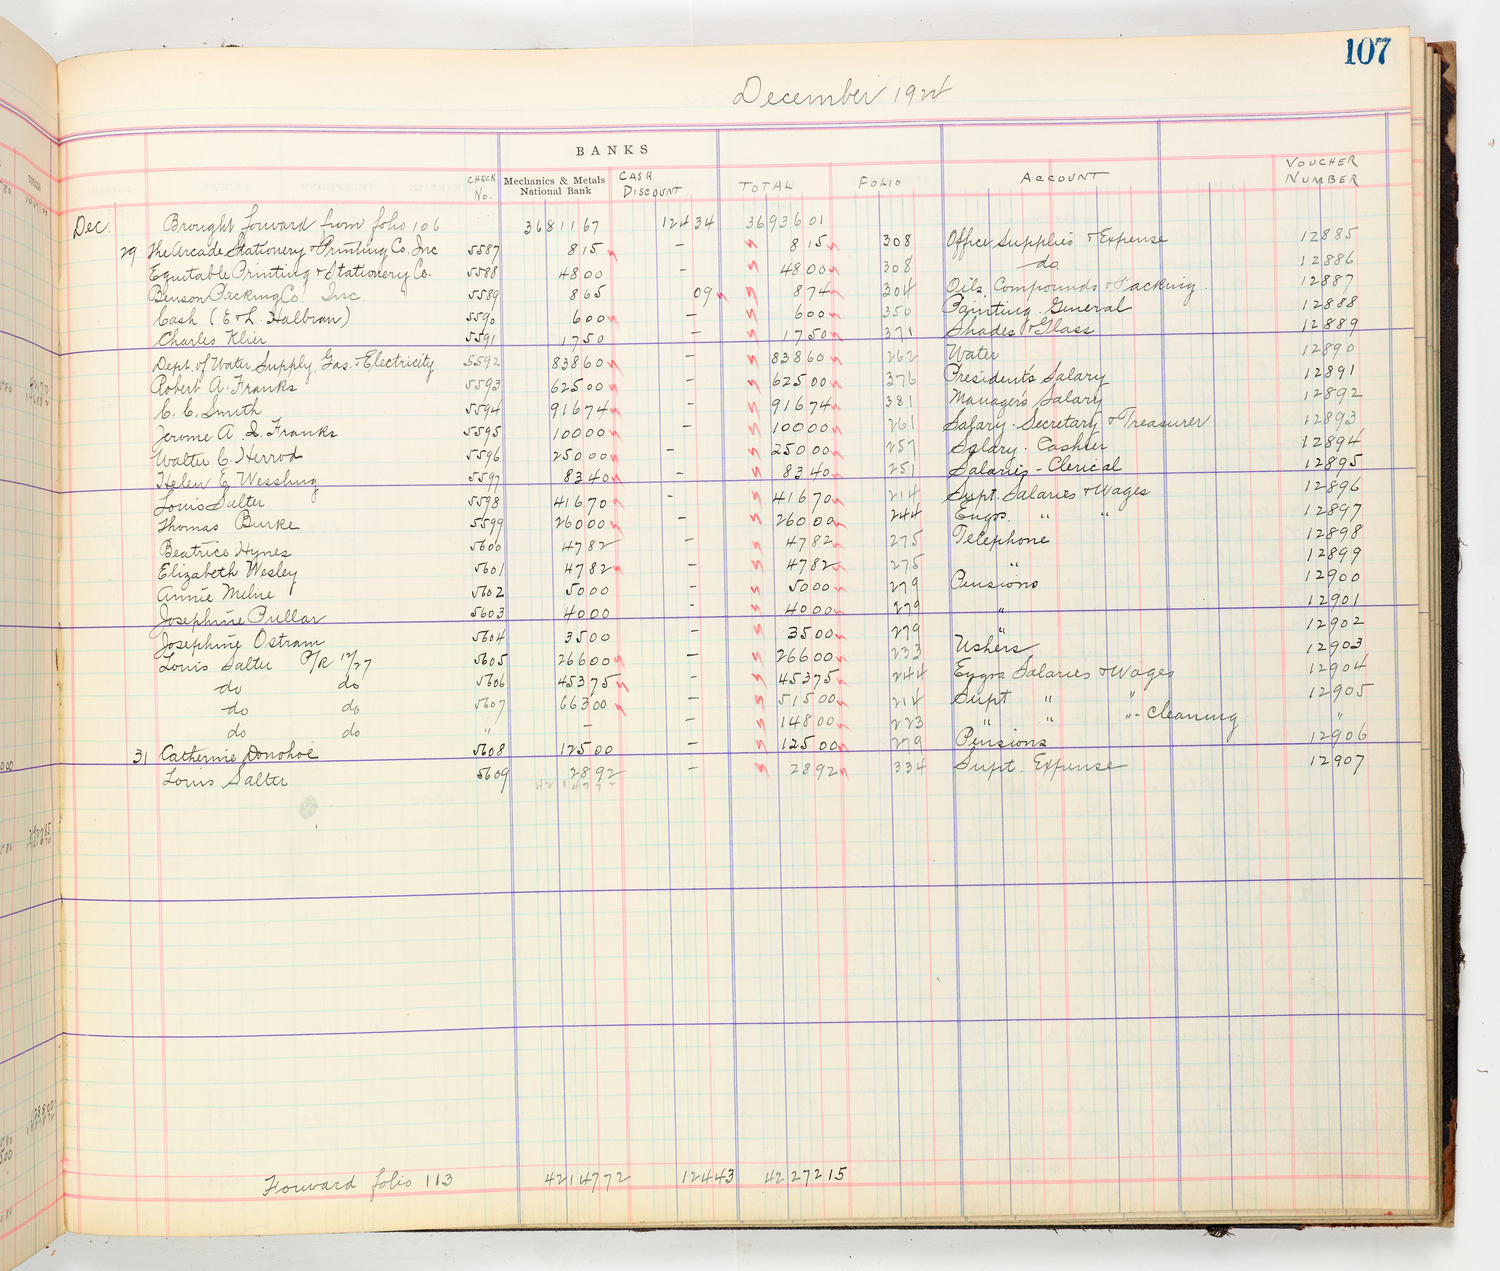 107
December 1922
BANKS
CHECK No. Mechanics & Metals National Bank CASH DISCOUNT TOTAL FOLIO ACCOUNT VOUCHER NUMBER
Dec. Brought forward from folio 106 3681167 12434 3693601
29 The Arcade Stationery & Printing Co. Inc 5587 815 – 815 308 Office Supplies & Expense 12885
Equitable Printing & Stationery Co. 5588 4800 – 4800 308 do 12886
Benson Packing Co. Inc 5589 865 09 874 304 Oils, Compounds & Packing. 12887
Cash (E & L. Halbran) 5590 600 – 600 350 Painting. General 12888
Charles Klier 5591 1750 – 1750 371 Shades & Glass 12889
Dept. of Water Supply, Gas. & Electricity 5592 83860 – 83860 262 Water 12890
Robert A. Franks 5593 62500 – 62500 376 President's Salary 12891
C. C. Smith 5594 91674 – 91674 381 Manager's Salary 12892
Jerome A. Q. Franks 5595 10000 – 10000 261 Salary. Secretary & Treasurer 12893
Walter C. Herrod 5596 25000 – 25000 257 Salary. Cashier 12894
Helen E. Wessling 5597 8340 – 8340 251 Salaries - Clerical 12895
Louis Salter 5598 41670 – 41670 214 Supt. Salaries & Wages 12896
Thomas Burke 5599 26000 – 26000 244 Engrs. " " 12897
Beatrice Hynes 5600 4782 – 4782 275 Telephone 12898
Elizabeth Wesley 5601 4782 – 4782 275 " 12899
Annie Milne 5602 5000 – 5000 279 Pensions 12900
Josephine Pullar 5603 4000 – 4000 279 " 12901
Josephine Ostram 5604 3500 – 3500 279 " 12902
Louis Salter P/R 12/27 5605 26600 – 26600 233 Ushers 12903
do do 5606 45375 – 45375 244 Engrs Salaries & Wages 12904
do do 5607 66300 51500 214 Supt " " 12905
do do " – – 14800 223 " " " - Cleaning "
31 Catherine Donohoe 5608 12500 – 12500 279 Pensions 12906
Louis Salter 5609 2892 – 2892 334 Supt. Expense 12907
Forward folio 113 4214772 12443 4227215